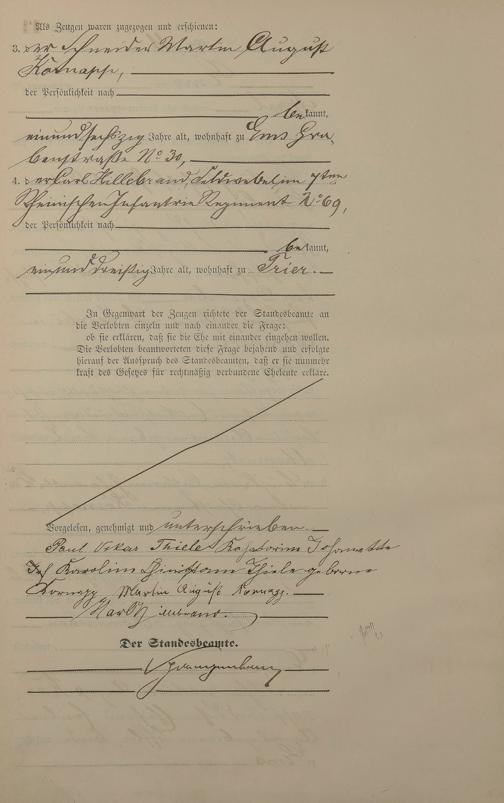 Als Zeugen waren zugezogen und erschienen:
3. der Schneider Martin August
Kornapp,
der Persönlichkeit nach
bekannt,
einundsechzig Jahre alt, wohnhaft zu Ems Gra-
benstraße No 30,
4. der Carl Hillebrand, Feldwebel im 7ten
Rheinischen Infantrie Regiment No 69,
der Persönlichkeit nach
bekannt,
einunddreißig Jahre alt, wohnhaft zu Trier.
In Gegenwart der Zeugen richtete der Standesbeamte an
die Verlobten einzeln und nach einander die Frage:
ob sie erklären, daß sie die Ehe mit einander eingehen wollen.
Die Verlobten beantworteten diese Frage bejahend und erfolgte
hierauf der Ausspruch des Standesbeamten, daß er sie nunmehr
kraft des Gesetzes für rechtmäßig verbundene Eheleute erkläre.
Vorgelesen, genehmigt und unterschrieben
Paul Oskar Thiele Katharine Johanette
Karoline Thiele geborne
Kornapp. Martin August Kornapp.
Der Standesbeamte.